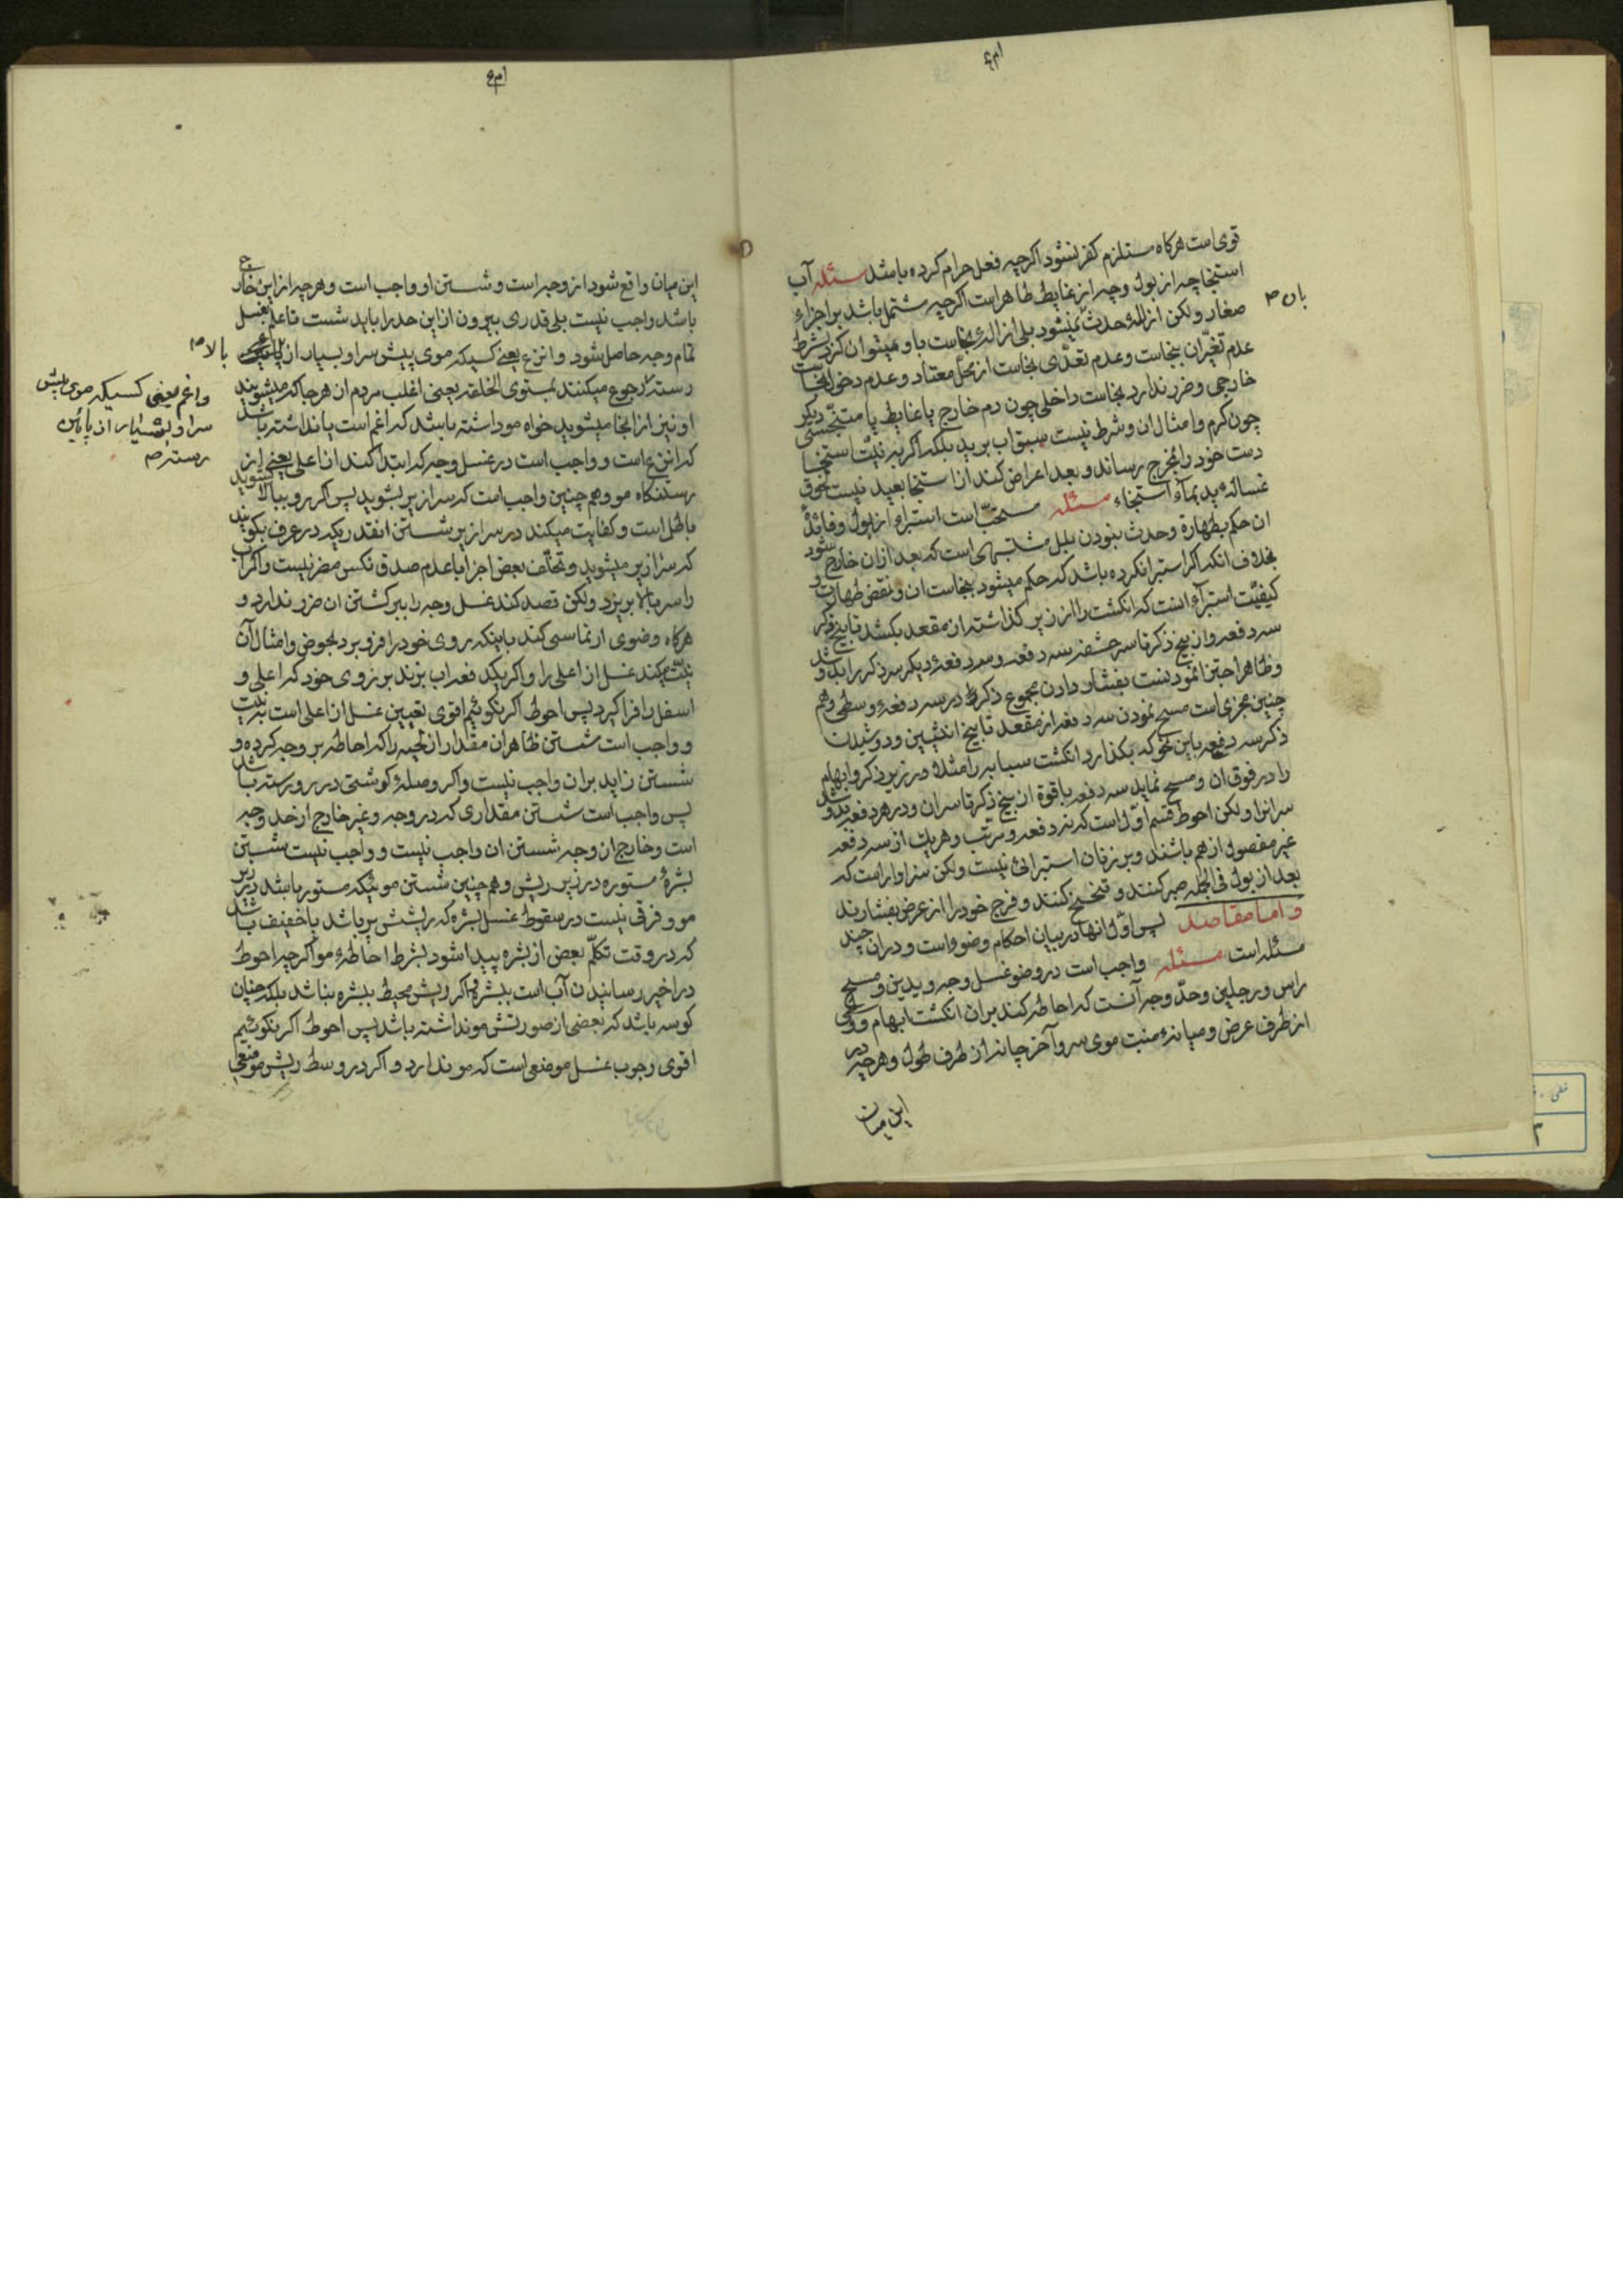 قوی است هرکاه مستلزم کفر نشود اکرچه فعل حرام کرده باشد مسئله آب
استنجا چه از بول و چه از غایط طاهر است اکرچه مشتمل باشد بر اجزاء
صغار ولکن ازالهٔ حدث نمیشود بلی ازالهٔ نجاست باو میتوان کرد بشرط
بان
عدم تغیّر ان بنجاست و عدم تعدّی نجاست از محلّ معتاد و عدم دخول نجاست
خارجی و ضرر ندارد نجاست داخلی چون دم خارج با غایط یا متنجّسی دیکر
چون کرم و امثال ان و شرط نیست سبق اب بر ید بلکه اکر به نیّت استنجا
دست خود را بمخرج رساند و بعد اعراض کند از استنجا بعید نیست لحوق
غسالهٔ ید بمآء استنجاء مسئله مستحبّ است استبراء از بول و فائدهٔ
ان حکم بطهارة و حدث نبودن بلل مشتبهی است که بعد از ان خارج شود
بخلاف انکه اکر استبرا نکرده باشد که حکم میشود بنجاست ان و نقض طهارت و
کیفیّت استبرآء انست که انکشت را از زیر کذاشته از مقعد بکشد تا بیخ ذکر
سه دفعه و از بیخ ذکر تا سر حشفه سه دفعه و سه دفعهٔ دیکر سر ذکر را بکشد و
ظاهرا جتز انمودنست بفشار دادن مجموع ذکر در سه دفعهٔ وسطی و هم
چنین مجزی است مسح نمودن سه دفعه از مقعد تا بیخ انثیین و دوشیدن
ذکر سه دفعه باین نحو که بکذارد انکشت سبابه را مثلا در زیر ذکر و ابهام
را در فوق ان و مسح نماید سه دفعه باقوة از بیخ ذکر تا سر ان و در هر دفعه بدوشد
سر انرا ولکن احوط قسم اوّل است که نه دفعه و مرتّب و هر یک از سه دفعه
غیر مفصول از هم باشند و بر زنان استبرائی نیست ولکن سزاوار است که
بعد از بول فی الجمله صبر کنند و تنحنح کنند و فرج خود را از عرض بفشارند
و اما مقاصد پس اوّل انها در بیان احکام وضو است و در ان چند
مسئله است مسئله واجب است در وضو غسل وجه و یدین و مسح
راس و رجلین و حدّ وجه آنست که احاطه کند بر ان انکشت ابهام و وسطی
از طرف عرض و میانهٔ منبت موی سر و آخر چانه از طرف طول و هرچه در
این میان
این میان واقع شود از وجه است و شستن او واجب است و هرچه از این خارج
باشد واجب نیست بلی قدری بیرون از این حد را باید شست تا علم بغسل
تمام وجه حاصل شود و انزع یعنی کسیکه موی پیش سر او بسیار از بالا
رسته رجوع میکنند بمستوی الخلقه یعنی اغلب مردم از هر جا که میشویند
واغم یعنی کسیکه موی پیش
سر او بسیار از پائین
رسته
او نیز از انجا میشوید خواه مو داشته باشد که اغم است یا نداشته باشد
که انزع است و واجب است در غسل وجه که ابتدا کند از اعلی یعنی از
رستنکاه مو و هم چنین واجب است که سرازیر بشوید پس اکر رو ببالا بشوید
باطل است و کفایت میکند در سرازیر شستن انقدریکه در عرف بکویند
که سرازیر میشوید و تخلّف بعض اجزا با عدم صدق نکس مضر نیست و اکر اب
را سر ببالا بریزد ولکن قصد کند غسل وجه را ببرکشتن ان ضرر ندارد و
هرکاه وضوی ارتماسی کند باینکه روی خود را فرو برد بحوض و امثال آن
نیّت میکند غسل از اعلی را و اکر یکدفعه اب بزند بر روی خود که اعلی و
اسفل را فراکیرد پس احوط اکر نکوئیم اقوی تعیین غسل از اعلی است به نیّت
و واجب است شستن ظاهر ان مقدار از لحیه را که احاطه بر وجه کرده و
شستن زاید بر ان واجب نیست و اکر وصلهٔ کوشتی در رو رسته باشد
پس واجب است شستن مقداری که در وجه و غیر خارج از حد وجه
است و خارج از وجه شستن ان واجب نیست و واجب نیست شستن
بشرهٔ مستوره در زیر ریش و هم چنین شستن موئیکه مستور باشد در زیر
مو و فرقی نیست در سقوط غسل بشره که ریشش پر باشد یا خفیف باشد
که در وقت تکلّم بعض از بشره پیدا شود بشرط احاطهٔ مو اکرچه احوط
در اخیر رسانیدن آب است ببشره و اکر ریش محیط ببشره نباشد بلکه چنان
کوسه باشد که بعضی از صورتش مو نداشته باشد پس احوط اکر نکوئیم
اقوی وجوب غسل موضعی است که مو ندارد و اکر در وسط ریش موضعی